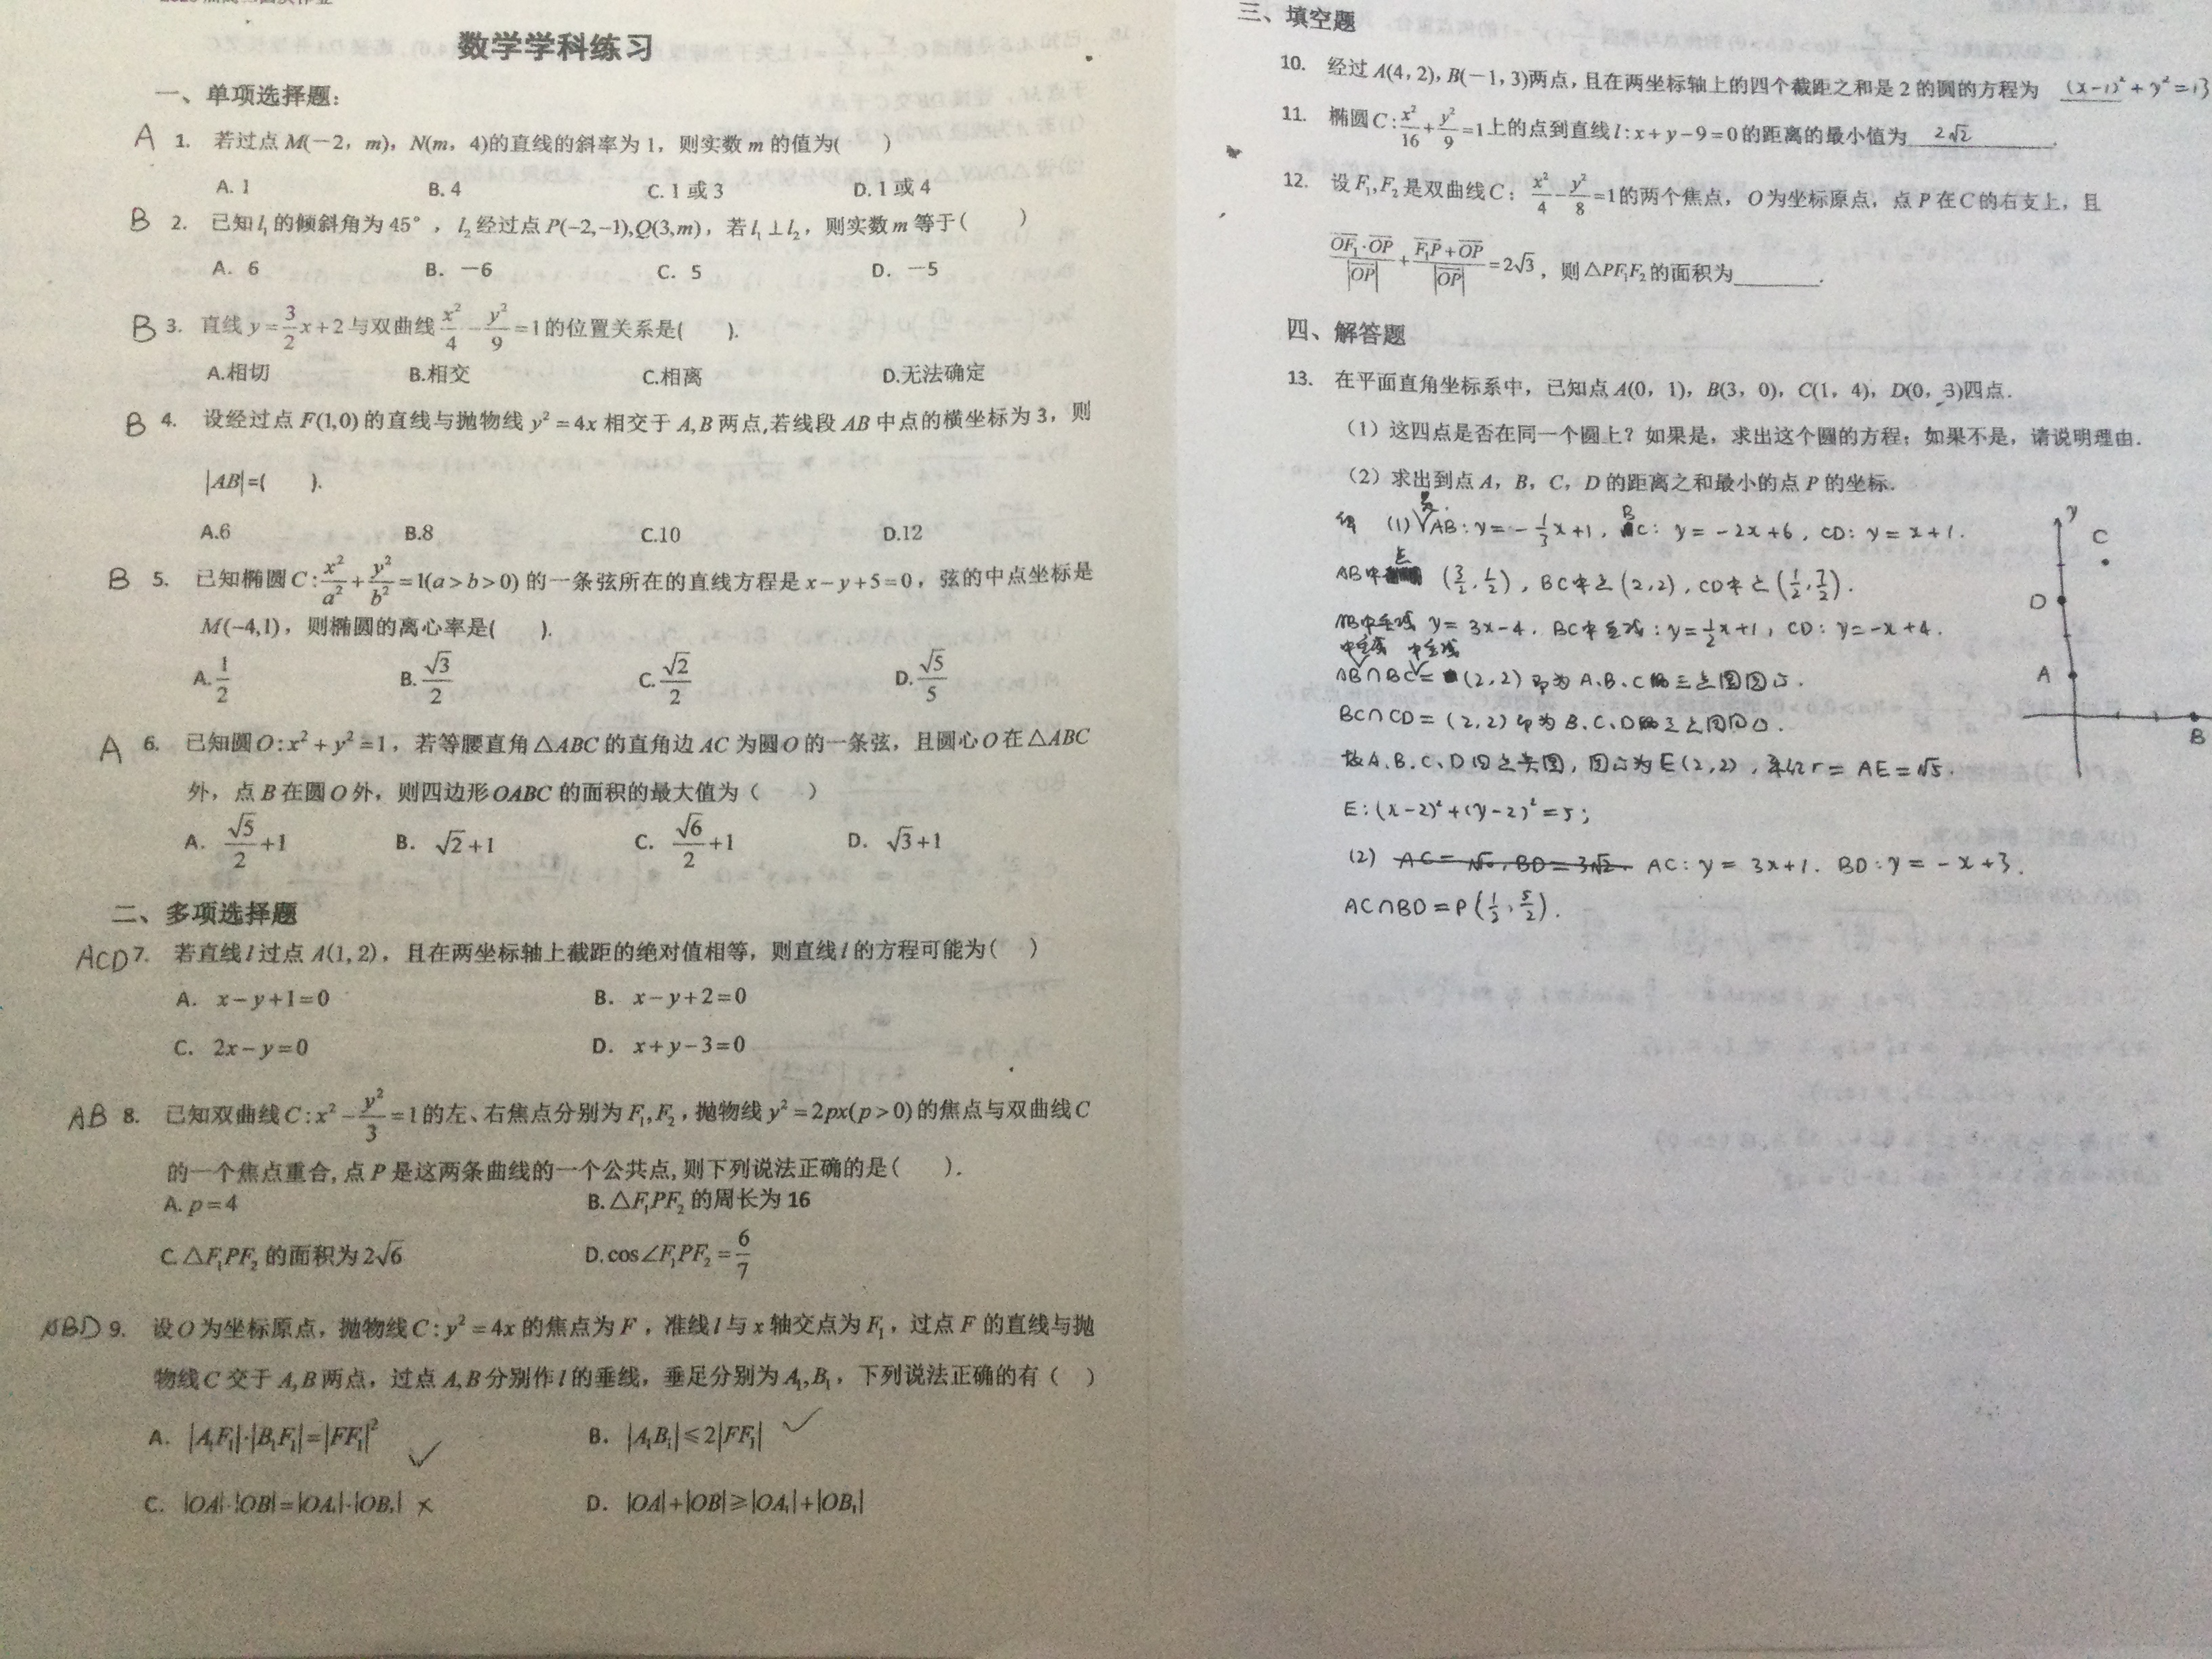 数学学科练习
一、单项选择题：
A 1. 若过点 M(－2，m)，N(m，4)的直线的斜率为 1，则实数 m 的值为( )
A. 1 B. 4 C. 1 或 3 D. 1 或 4
B 2. 已知 l₁ 的倾斜角为 45°，l₂ 经过点 P(−2,−1),Q(3,m)，若 l₁⊥l₂，则实数 m 等于( )
A. 6 B. －6 C. 5 D. －5
B 3. 直线 y=3/2x+2 与双曲线 x²/4−y²/9=1 的位置关系是( ).
A.相切 B.相交 C.相离 D.无法确定
B 4. 设经过点 F(1,0) 的直线与抛物线 y²=4x 相交于 A,B 两点,若线段 AB 中点的横坐标为 3，则
|AB|=( ).
A.6 B.8 C.10 D.12
B 5. 已知椭圆 C:x²/a²+y²/b²=1(a>b>0) 的一条弦所在的直线方程是 x−y+5=0，弦的中点坐标是
M(−4,1)，则椭圆的离心率是( ).
A.1/2 B.√3/2 C.√2/2 D.√5/5
A 6. 已知圆 O:x²+y²=1，若等腰直角△ABC 的直角边 AC 为圆 O 的一条弦，且圆心 O 在△ABC
外，点 B 在圆 O 外，则四边形 OABC 的面积的最大值为（ ）
A. √5/2+1 B. √2+1 C. √6/2+1 D. √3+1
二、多项选择题
ACD 7. 若直线 l 过点 A(1,2)，且在两坐标轴上截距的绝对值相等，则直线 l 的方程可能为( )
A. x−y+1=0 B. x−y+2=0
C. 2x−y=0 D. x+y−3=0
AB 8. 已知双曲线 C:x²−y²/3=1 的左、右焦点分别为 F₁,F₂，抛物线 y²=2px(p>0) 的焦点与双曲线 C
的一个焦点重合,点 P 是这两条曲线的一个公共点,则下列说法正确的是( ).
A. p=4 B.△F₁PF₂ 的周长为 16
C.△F₁PF₂ 的面积为 2√6 D.cos∠F₁PF₂=6/7
ABD 9. 设 O 为坐标原点，抛物线 C:y²=4x 的焦点为 F，准线 l 与 x 轴交点为 F₁，过点 F 的直线与抛
物线 C 交于 A,B 两点，过点 A,B 分别作 l 的垂线，垂足分别为 A₁,B₁，下列说法正确的有（ ）
A. |A₁F₁|·|B₁F₁|=|FF₁|² ✓ B. |A₁B₁|≤2|FF₁| ✓
C. |OA|·|OB|=|OA₁|·|OB₁| × D. |OA|+|OB|≥|OA₁|+|OB₁|
三、填空题
10. 经过 A(4,2),B(－1,3)两点,且在两坐标轴上的四个截距之和是 2 的圆的方程为 (x-1)²+y²=13
11. 椭圆 C:x²/16+y²/9=1 上的点到直线 l:x+y−9=0 的距离的最小值为 2√2 .
12. 设 F₁,F₂ 是双曲线 C：x²/4−y²/8=1 的两个焦点，O 为坐标原点，点 P 在 C 的右支上，且
OF₁·OP/|OP|+F₁P+OP/|OP|=2√3，则△PF₁F₂ 的面积为 .
四、解答题
13. 在平面直角坐标系中，已知点 A(0，1)，B(3，0)，C(1，4)，D(0，3)四点.
（1）这四点是否在同一个圆上？如果是，求出这个圆的方程；如果不是，请说明理由.
（2）求出到点 A，B，C，D 的距离之和最小的点 P 的坐标.
解 (1) 是. AB: y=-1/3x+1, BC: y=-2x+6, CD: y=x+1.
AB中点 (3/2,1/2), BC中点(2,2), CD中点(1/2,7/2).
AB中垂线 y=3x-4. BC中垂线: y=1/2x+1, CD: y=-x+4.
中垂线 中垂线
AB∩BC=(2,2) 即为 A、B、C三点圆圆心.
BC∩CD=(2,2) 即为 B、C、D三点圆圆心.
故A、B、C、D四点共圆, 圆心为E(2,2), 半径r=AE=√5.
E: (x-2)²+(y-2)²=5;
(2) AC: y=3x+1. BD: y=-x+3.
AC∩BD=P(1/2,5/2).
y
C
D
A
B